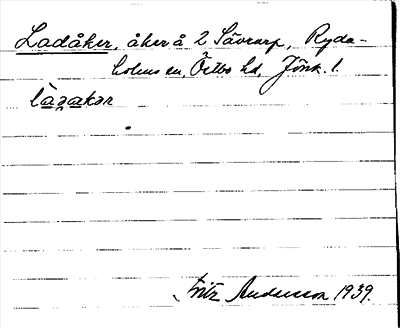 Ladåker, åker å 2 Sävrarp, Ryda-
holms sn, Östbo hd, Jönk. l.
làgakər
Fritz Andersson 1939.